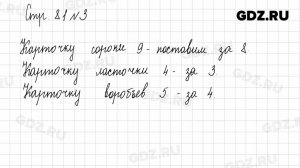 GDZ.RU
Стр. 81 №3
Карточку сороки 9 - поставим за 8
Карточку ласточки 4 - за 3.
Карточку воробьев 5 - за 4.